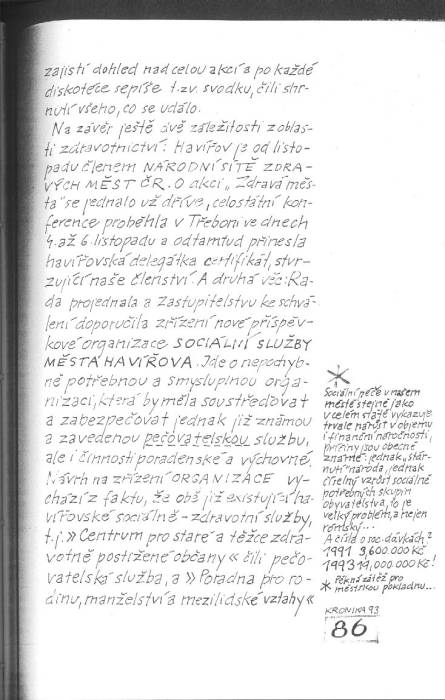 zajistí dohled nad celou akcí a po každé
diskotéce sepíše t.zv. svodku, čili shr-
nutí všeho, co se událo.
Na závěr ještě dvě záležitosti z oblas-
ti zdravotnictví: Havířov je od listo-
padu členem NÁRODNÍ SÍTĚ ZDRA-
VÝCH MĚST ČR. O akci „Zdravá měs-
ta" se jednalo už dříve, celostátní kon-
ference proběhla v Třeboni ve dnech
4. až 6. listopadu a odtamtud přinesla
havířovská delegátka certifikát, stvr-
zující naše členství. A druhá věc: Ra-
da projednala a zastupitelstvu ke schvá-
lení doporučila zřízení nové příspěv-
kové organizace SOCIÁLNÍ SLUŽBY
MĚSTA HAVÍŘOVA. Jde o nepochyb-
ně potřebnou a smysluplnou orga-
nizaci, která by měla soustřeďovat
a zabezpečovat jednak již známou
a zavedenou pečovatelskou službu,
ale i činnosti poradenské a výchovné.
Návrh na zřízení ORGANIZACE vy-
chází z faktu, že obě již existující ha-
vířovské sociálně-zdravotní služby,
t.j. » Centrum pro staré a těžce zdra-
votně postižené občany « čili pečo-
vatelská služba, a » Poradna pro ro-
dinu, manželství a mezilidské vztahy «
*
Sociální péče v našem
městě stejně jako
v celém státě vykazuje
trvalé nárůst v objemu
i finanční náročnosti,
příčiny jsou obecně
známé: jednak „stár-
nutí" národa, jednak
číselný vzrůst sociálně
potřebných skupin
obyvatelstva, to je
velký problém, a nejen
romský...
A čísla o soc. dávkách?
1991 3,600.000 Kč
1993 19,000.000 Kč!
Pěkná zátěž pro
* městskou pokladnu...
KRONIKA 93
86